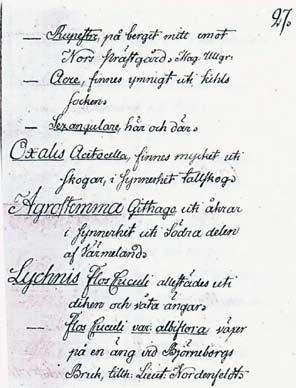 27.
— Rupestre, på berget mitt emot
Nors Prästgård. Hag. Ulgr.
— Acre, finnes ymnigt uti Kihls
socken.
— Sexangulare, här och där.
Oxalis Acitocella, finnes myckit uti
skogar, i synnerhet tallskog.
Agrostemma Githago uti åkrar
i synnerhet uti Södra delen
af Värmeland.
Lychnis Flos Cuculi allestädes uti
diken och våta ängar.
— Flos Cuculi var: albiflora växer
på en äng vid Björneborgs
Bruk, tillh. Lieut. Nordenfeldts